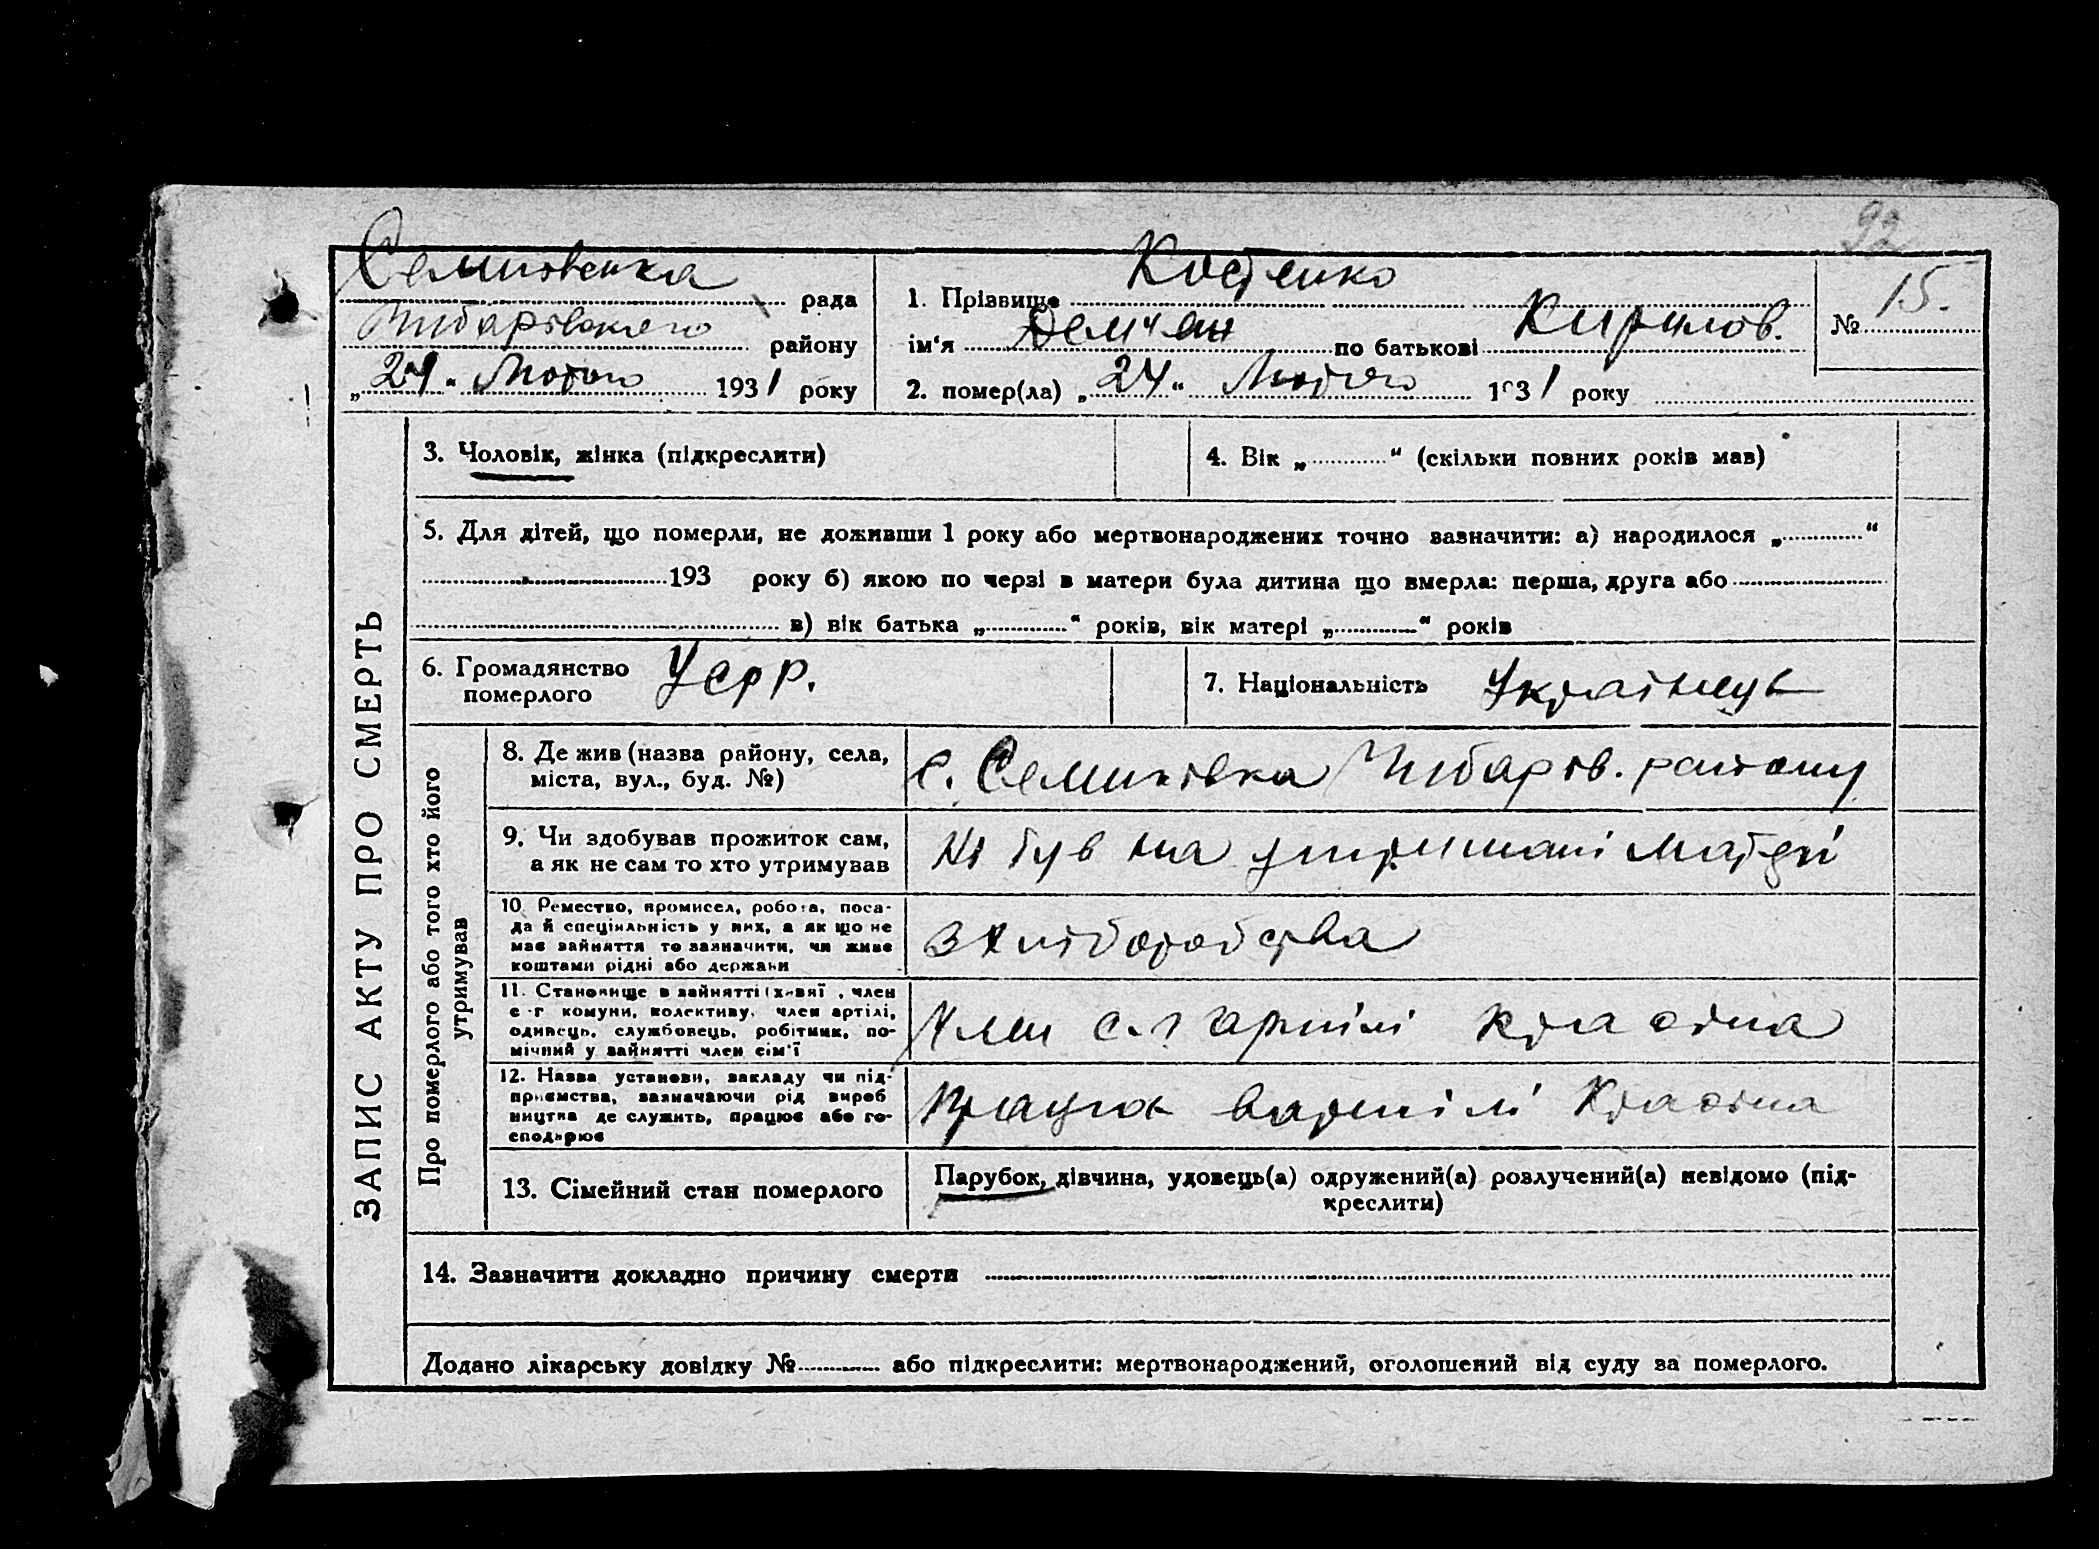 92
Семиховська рада
Чубарівського району
„24“ Лютого 1931 року
1. Прізвище Костенко
ім'я Демчан по батькові Кирилов.
№ 15.
2. помер(ла) „24“ Лютого 1931 року
ЗАПИС АКТУ ПРО СМЕРТЬ
3. Чоловік, жінка (підкреслити)
4. Вік „ “ (скільки повних років мав)
5. Для дітей, що померли, не доживши 1 року або мертвонароджених точно зазначити: а) народилося „ “
193 року б) якою по черзі в матери була дитина що вмерла: перша, друга або
в) вік батька „ “ років, вік матері „ “ років
6. Громадянство
померлого
УСРР.
7. Національність Українець
Про померлого або того хто його
утримував
8. Де жив (назва району, села,
міста, вул., буд. №)
с. Семихівка Чубарів. району
9. Чи здобував прожиток сам,
а як не сам то хто утримував
Ні був на утримані матері
10. Ремество, промисел, робота, поса-
да й спеціяльність у них, а як що не
має зайняття то зазначити, чи живе
коштами рідні або держави
З хліборобства
11. Становище в зайнятті (хазяї, член
с-г комуни, колективу, член артілі,
одинець, службовець, робітник, по-
мічний у зайнятті член сім'ї
Член с.г артілі Красіна
12. Назва установи, закладу чи під-
приємства, зазначаючи рід вироб
ництва де служить, працює або го-
сподарює
Працює в артілі Красіна
13. Сімейний стан померлого
Парубок, дівчина, удовець(а) одружений(а) розлучений(а) невідомо (під-
креслити)
14. Зазначити докладно причину смерти
Додано лікарську довідку № або підкреслити: мертвонароджений, оголошений від суду за померлого.